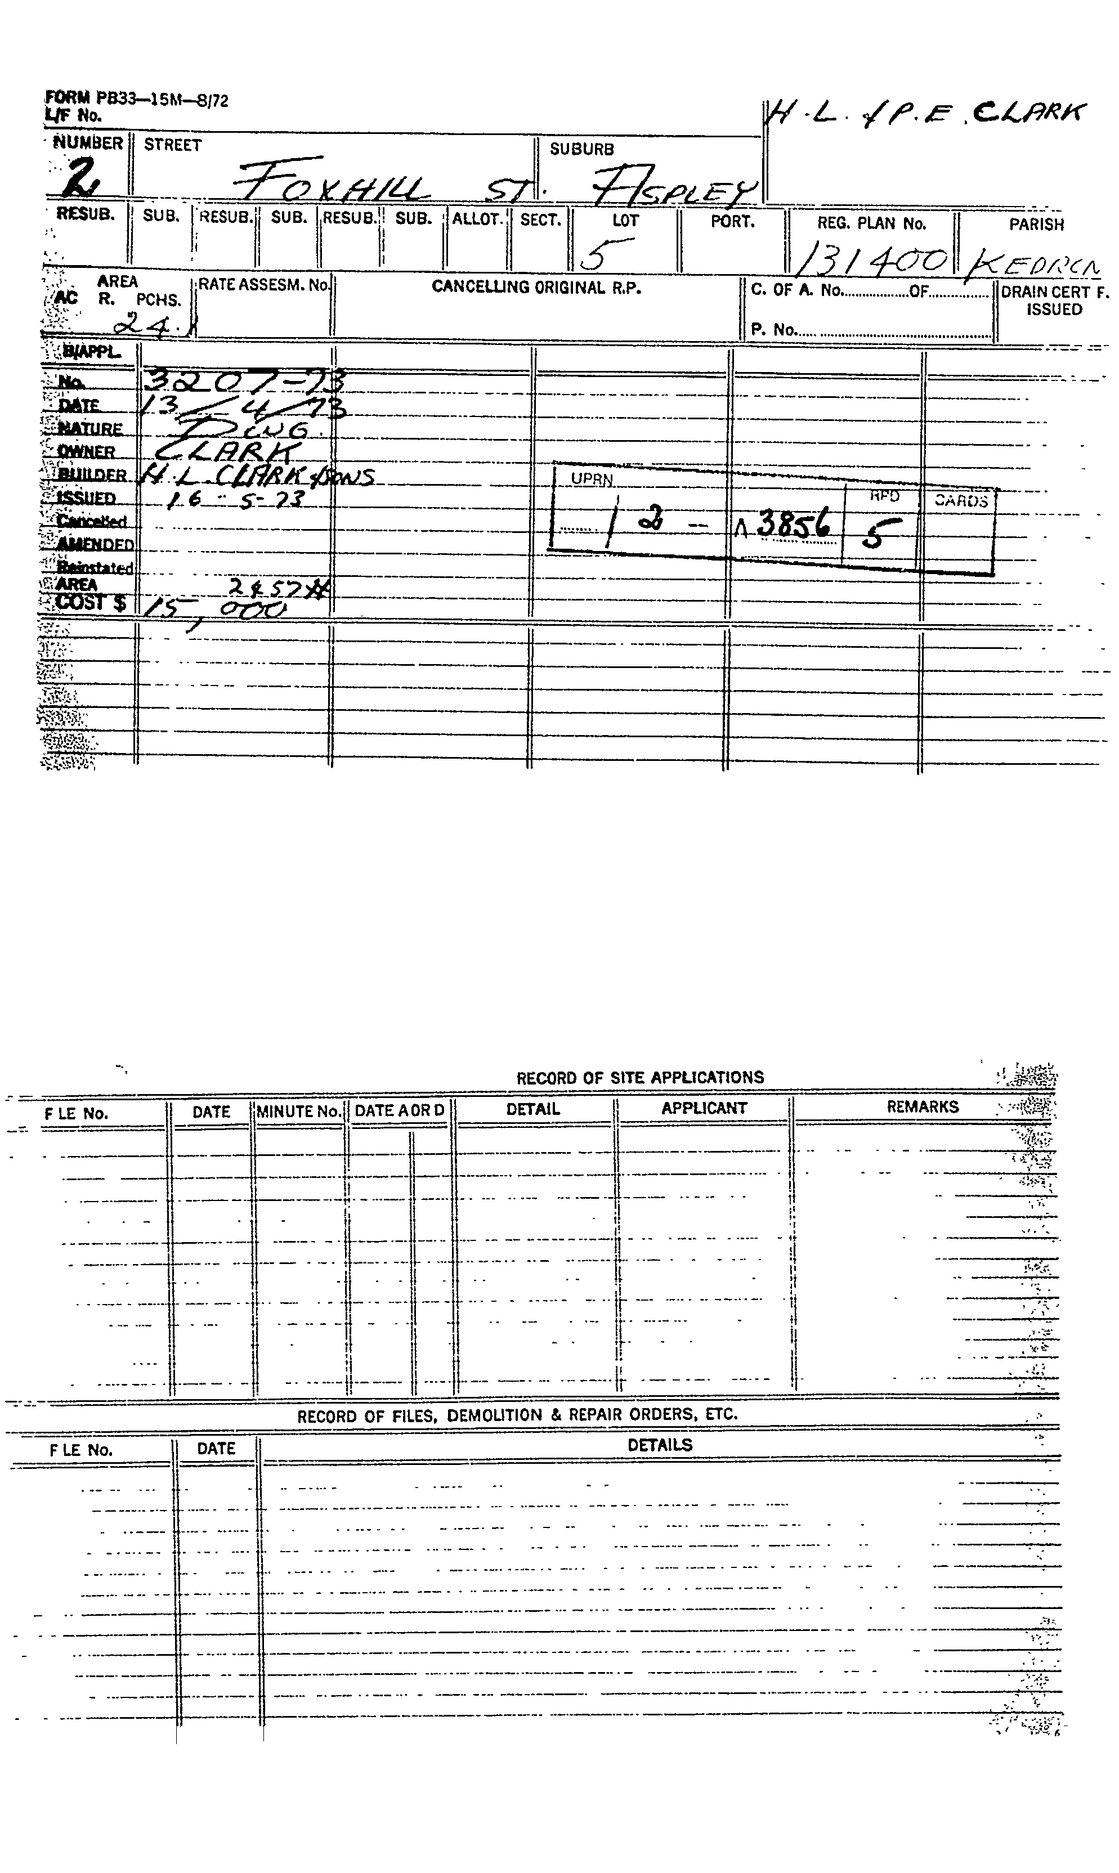 FORM PB33—15M—8/72
L/F No.
H.L. & P.E. CLARK
NUMBER STREET SUBURB
2 FOXHILL ST. ASPLEY
RESUB. SUB. RESUB. SUB. RESUB. SUB. ALLOT. SECT. LOT PORT. REG. PLAN No. PARISH
5 131400
AREA RATE ASSESM. No. CANCELLING ORIGINAL R.P. C. OF A. No. OF DRAIN CERT F.
AC R. PCHS. ISSUED
24.1 P. No.
B/APPL.
No. 3207-73
DATE 13/4/73
NATURE DWG.
OWNER CLARK
BUILDER H.L. CLARK & SONS
ISSUED 16-5-73
Cancelled
AMENDED
Reinstated
AREA 2457
COST $ 15,000
UPRN RPD CARDS
2 - 3856 5
RECORD OF SITE APPLICATIONS
F LE No. DATE MINUTE No. DATE A OR D DETAIL APPLICANT REMARKS
RECORD OF FILES, DEMOLITION & REPAIR ORDERS, ETC.
F LE No. DATE DETAILS